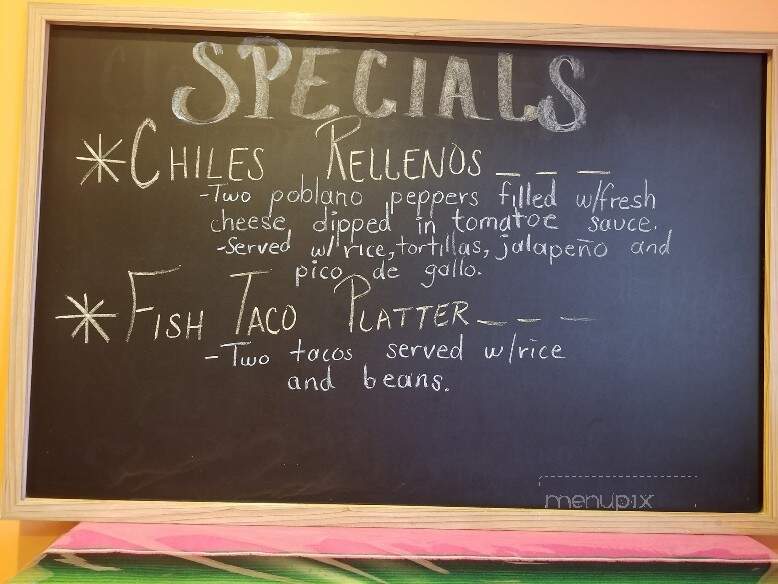 SPECIALS
*CHILES RELLENOS _ _ _
-Two poblano peppers filled w/fresh
cheese, dipped in tomatoe sauce.
-Served w/rice, tortillas, jalapeño and
pico de gallo.
*FISH TACO PLATTER _ _ _
-Two tacos served w/rice
and beans.
menupix